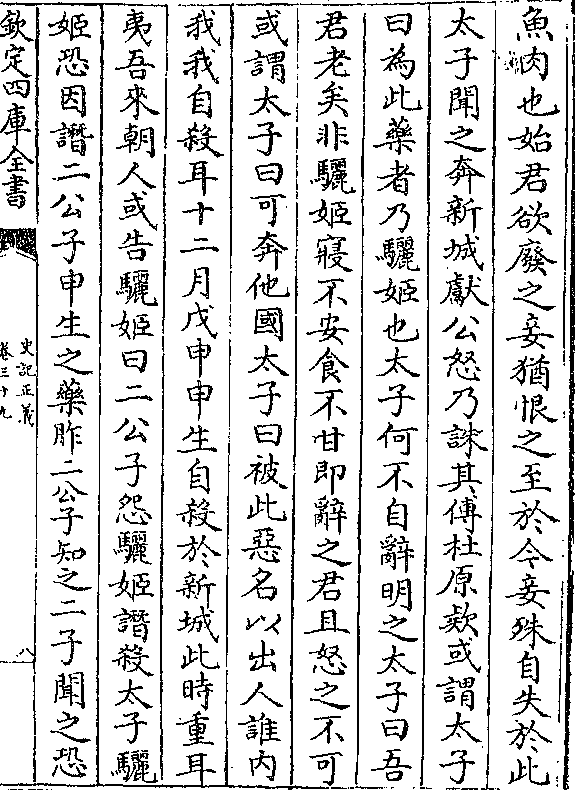 魚肉也始君欲廢之妾猶恨之至於今妾殊自失於此
太子聞之奔新城獻公怒乃誅其傅杜原欵或謂太子
曰為此藥者乃驪姬也太子何不自辭明之太子曰吾
君老矣非驪姬寢不安食不甘即辭之君且怒之不可
或謂太子曰可奔他國太子曰被此惡名以出人誰内
我我自殺耳十二月戊申申生自殺於新城此時重耳
夷吾來朝人或告驪姬曰二公子怨驪姬譖殺太子驪
姬恐因譖二公子申生之藥胙二公子知之二子聞之恐
欽定四庫全書
史記正義
卷三十九
八